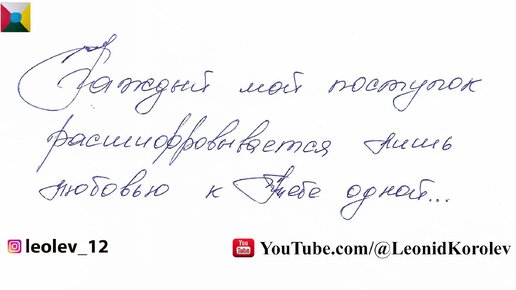 Каждый мой поступок
расшифровывается лишь
любовью к Тебе одной...
leolev_12
You Tube
YouTube.com/@LeonidKorolev